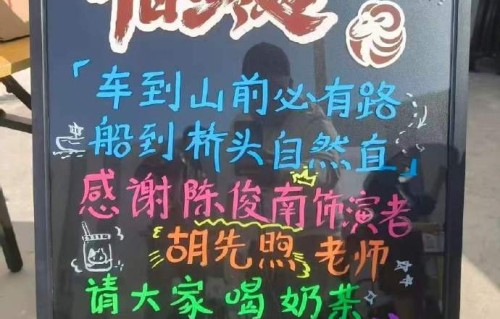 「车到山前必有路
船到桥头自然直」
感谢陈俊南饰演者
胡先煦老师
请大家喝奶茶